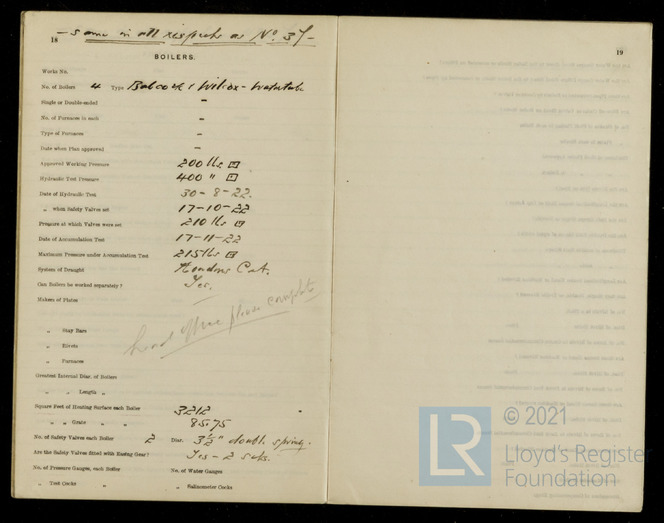 18
- same in all respects as No. 37 -
BOILERS.
Works No.
No. of Boilers 4 Type Babcock & Wilcox - Watertube
Single or Double-ended -
No. of Furnaces in each -
Type of Furnaces -
Date when Plan approved -
Approved Working Pressure 200 lbs
Hydraulic Test Pressure 400 "
Date of Hydraulic Test 30-8-22.
" when Safety Valves set 17-10-22
Pressure at which Valves were set 210 lbs
Date of Accumulation Test 17-11-22
Maximum Pressure under Accumulation Test 215 lbs
System of Draught
Can Boilers be worked separately? Yes.
Makers of Plates -
" Stay Bars
Head Office please complete
" Rivets
" Furnaces
Greatest Internal Diam. of Boilers
" " Length "
Square Feet of Heating Surface each Boiler 3212
" " Grate " " 85.75
No. of Safety Valves each Boiler 2 Diar. 3½" double spring.
Are the Safety Valves fitted with Easing Gear? Yes - 2 sets.
No. of Pressure Gauges, each Boiler No. of Water Gauges
" Test Cocks " " Salinometer Cocks
19
LR
© 2021
Lloyd's Register
Foundation